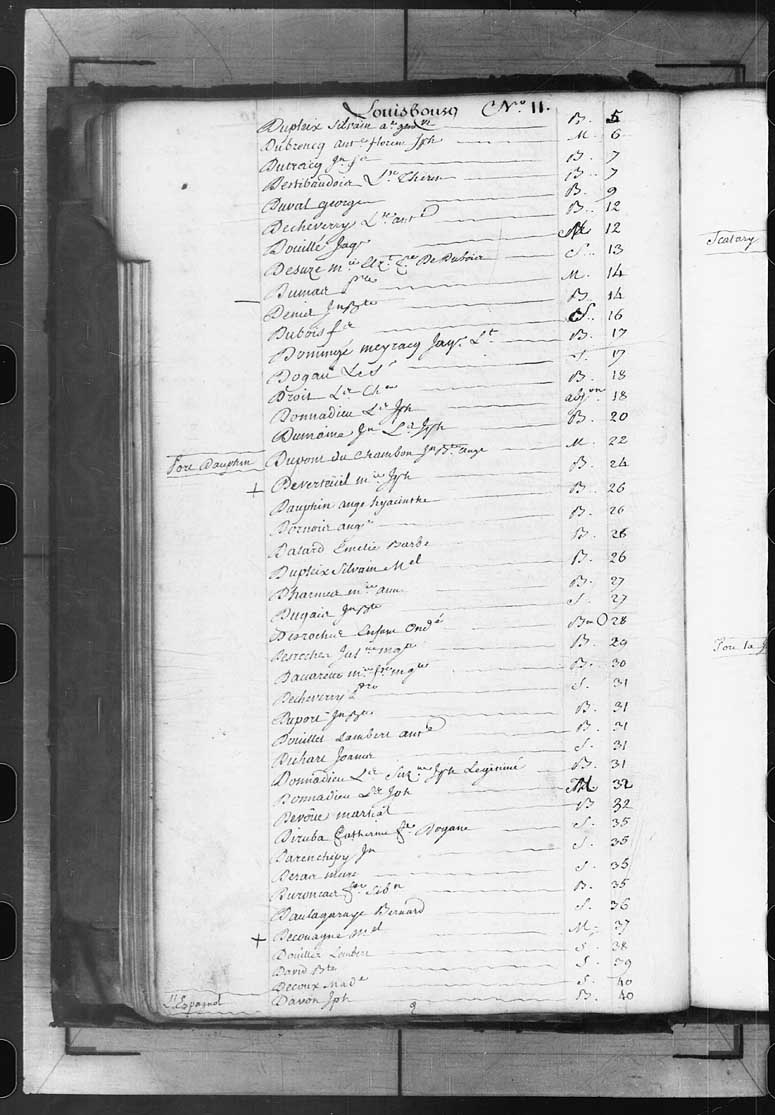 Louisbourg N.o 11.
Dupleix Silvain B. 5
Dubrencq ant.e florent Jph M. 6
Dutracq Jn B. 7
Destibaudois L.se Theres B. 7
Duval george B. 9
Decheverry L.s ant.e B. 12
Douillé Jaq.s M 12
Desuze m.ie De Dubois S. 13
Dumas p.re M. 14
Denis Jn Bte B. 14
Dubois f.se S. 16
Domingé meyracq Jaq.s L.t B. 17
Dogau Le S.r S. 17
Droit L.se Ch.e B. 18
Donnadieu L.se Jph abj.on 18
Dumaine Jn L.s Jph B. 20
Fort Dauphin Dupont du Chambon Jn Bte ange M. 22
+ Deverteüil m.ie Jph B. 24
Dauphin ange hyacinthe B. 26
Dornoir ang.e B. 26
Datard Emelie Barbe B. 26
Dupleix Silvain Mel B. 26
Dharmes m.ie anne B. 27
Dugais Jn Bte S. 27
Desroches Enfant Ond.é Bm O 28
Desroches Jul.nne mg.te B. 29
Dacarette m.ie mg.te B. 30
Decheverry S. 31
Duport Jn Bte B. 31
Douillet Lambert ant.e B. 31
Duhart Joannis S. 31
Donnadieu L.se Suz.ne Jph Legitimé B. 31
Donnadieu L.se Jph M. 32
Devoüe martial B 32
Diruba Catherine f.e Dogane S. 35
Darenchipy Jn S. 35
Desar S. 35
Duroncas Sebn B. 35
Daulagaraye Bernard S. 36
+ Decouagne Mel M. 37
Douillet Lambert S 38
David Bte S. 39
Decoux Mad.e S. 40
L'Espagnol Davon Jph B. 40
9
Scatary
Port la J